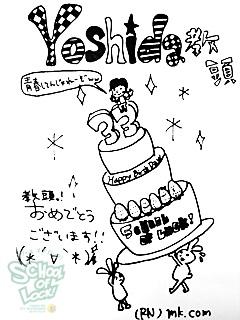 Yoshida教頭
青春しんじゃれーどww
33
Happy Birth Day
School
of Lock!
教頭!
おめでとう
ございます!!
SCHOOL
OF
LOCK!
(RN) mk.com